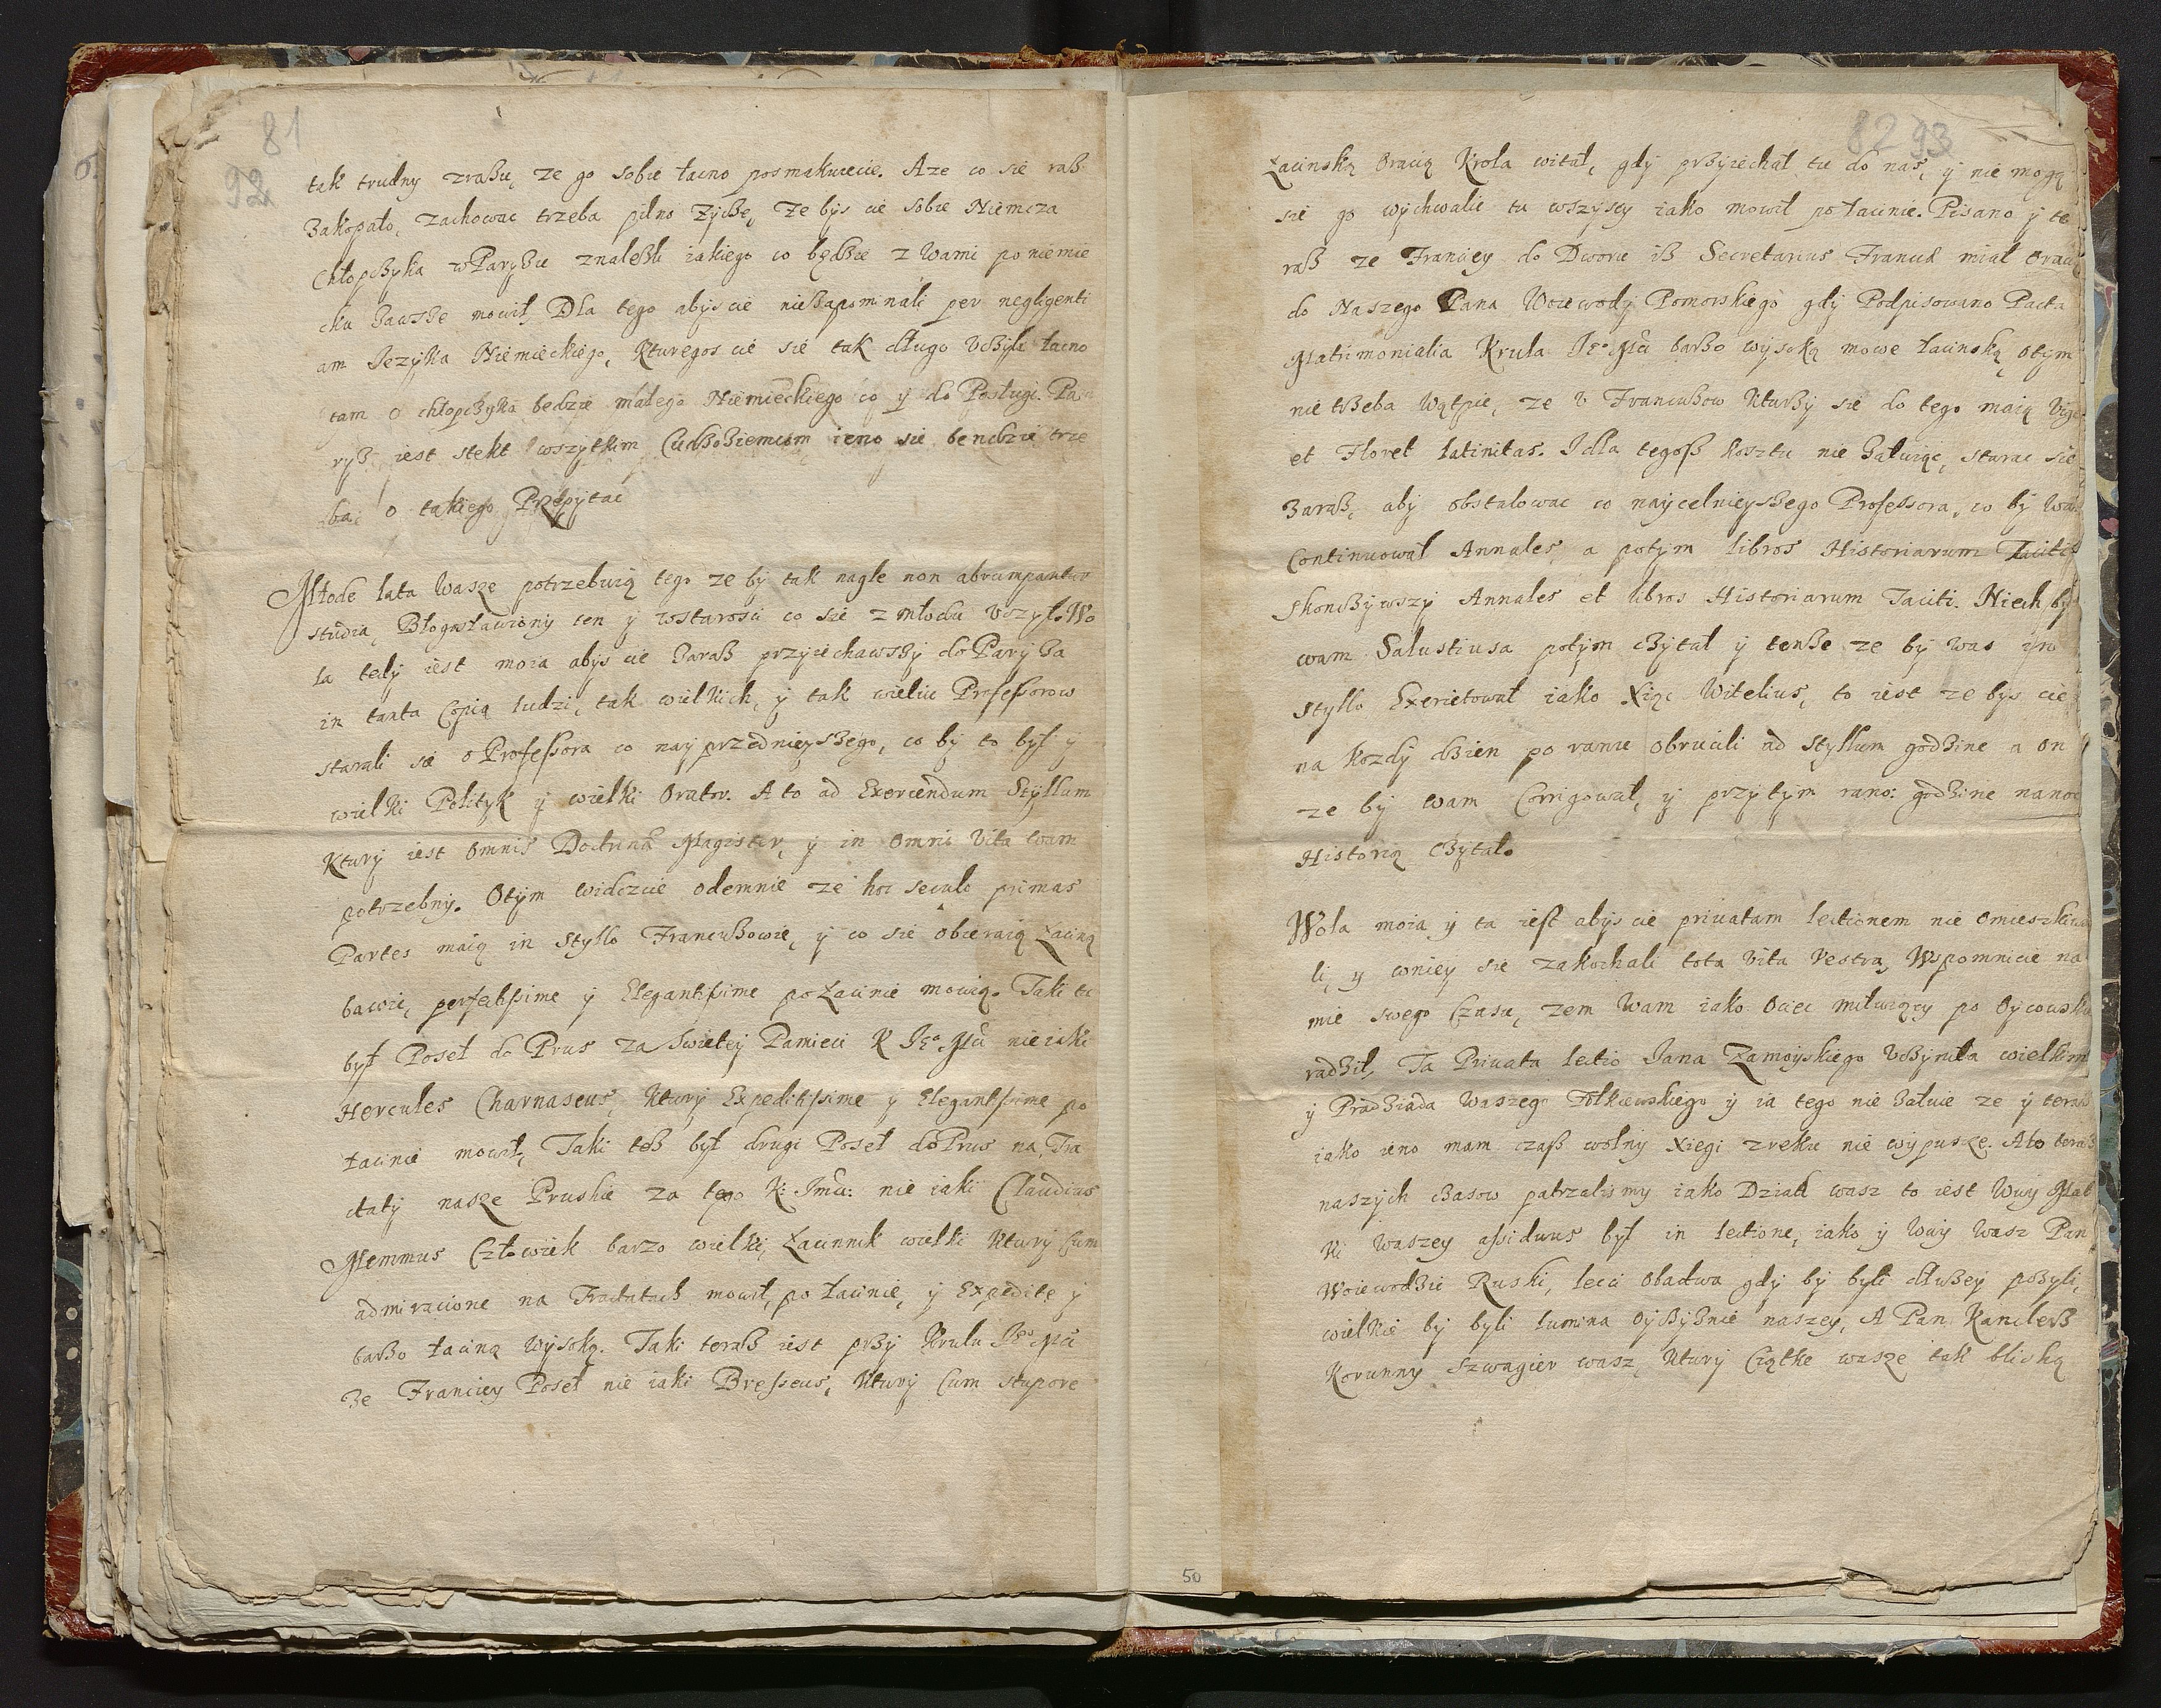 81
92
tak trudny zraßu, ze go sobie łacno posmakuiecie. Aze co się raß
Zakopało, zachowac trzeba pilno Zyczę, Ze bys cie sobie Niemcza
Chłopczyka w Paryżu znaleźli iakiego co będzie z Wami po niemie
cku zawsze mowił, Dla tego abys cie nie zapominali per negligenti
am Jezyka Niemieckiego, Kturegos cie się tak długo Vczyli łacno
tam o chłopczyka bedzie małego Niemieckiego co y do Posługi. Pa
ryß iest stekt wszytkim Cudzoziemcom ieno się bendzie trze
ba o takiego Przepytac
Młode lata Wasze potrzebuią tego ze by tak nagle non abrumpantur
studia, Błogosławiony ten y w starosci co sie z młodu Vczył. Wo
la tedy iest moia abys cie Zaraß przyiechawszy do Paryża
in tanta Copia ludzi, tak wielkich, y tak wielu Professorow
starali sie o Professora co nayprzednieyszego, co by to był y
wielki Polityk y wielki Orator. A to ad Exercendum Styllum
Ktury iest Omnis Doctrinæ Magister, y in Omni Vita wam
potrzebny. Otym widzcie odemnie ze hoc seculo primas
Partes maią in Styllo Francuzowie, y co się obieraią Łaciną
bawic, perfectissime y Elegantissime po Łacinie mowią. Taki tu
był Poseł do Prus za Swietey Pamieci K Jeo Mci nieiaki
Hercules Charnaseus, Ktury Expeditissime y Elegantissime po
łacinie mowił, Taki teß był drugi Poseł do Prus na Tra
ctaty nasze Pruskie za tego K: Jmci: nie iaki Claudius
Memmus Człowiek barzo wielki, Łacinnik wielki Ktury Cum
admiracione na Tractatach mowił, po łacinie, y Expedite y
barzo łaciną wysoką. Taki teraß iest przy Krulu Jeo Mci
Ze Franciey Poseł nie iaki Bresseus, Ktury Cum stupore
50
82 93
Łacinską Oracią Krola witał, gdy przyiechał tu do nas, y nie mogą
się go wychwalic tu wszyscy iako mowił po łacinie. Pisano y te
raß ze Franciey do Dworu iß Secretarius Francuz miał Orac
do Naszego Pana Woiewody Pomorskiego gdy Podpisowano Pacta
Matrimonialia Krula Jeo Mci barzo wysoką mowe łacinską, otym
nie trzeba wątpic, ze v Francuzow Kturzy się do tego maią Vige
et Floret latinitas. Jdla tegoß kosztu nie Załuiąc, starac się
Zaraß, aby obstalowac co naycelnieyszego Professora, co by Wam
Continuował Annales, a potym libros Historiarum Taciti
Skonczywszy Annales et libros Historiarum Taciti. Niech by
wam Salustiusa potym czytał y tenze ze by was in
Styllo Exercitował iako Xiąc Witelius, to iest ze bys cie
na kozdy dzien po ranu obrucili ad Styllum godzine a on
ze by wam Corrigował, y przytym rano: godzine na noc
Historią czytał.
Wola moia y ta iest abys cie priuatam lectionem nie omieszkiwa
li, y w niey się zakochali tota Vita Vestra, Wspomnicie na
mie swego Czasu, zem Wam iako Ociec miłuiący po Oycowsku
radził, Ta Priuata lectio Jana Zamoyskiego Vczyniła wielkim
y Pradziada Waszego Zołkiewskiego y ia tego nie Załuie ze y teraß
iako ieno mam czaß wolny Xiegi z reku nie wypuszcze. A to teraß
naszych czasow patrzalismy iako Dziad wasz to iest Wuy Mat
ki Waszey assiduus był in lectione, iako y Wuy Wasz Pan
Woiewodzic Ruski, lecz Obadwa gdy by byli dłuzey pozyli,
wielkie by byli lumina Oyczyznie naszey, A Pan Kanclerß
Korunny Szwagier wasz, Ktury Ciątke wasze tak bliską